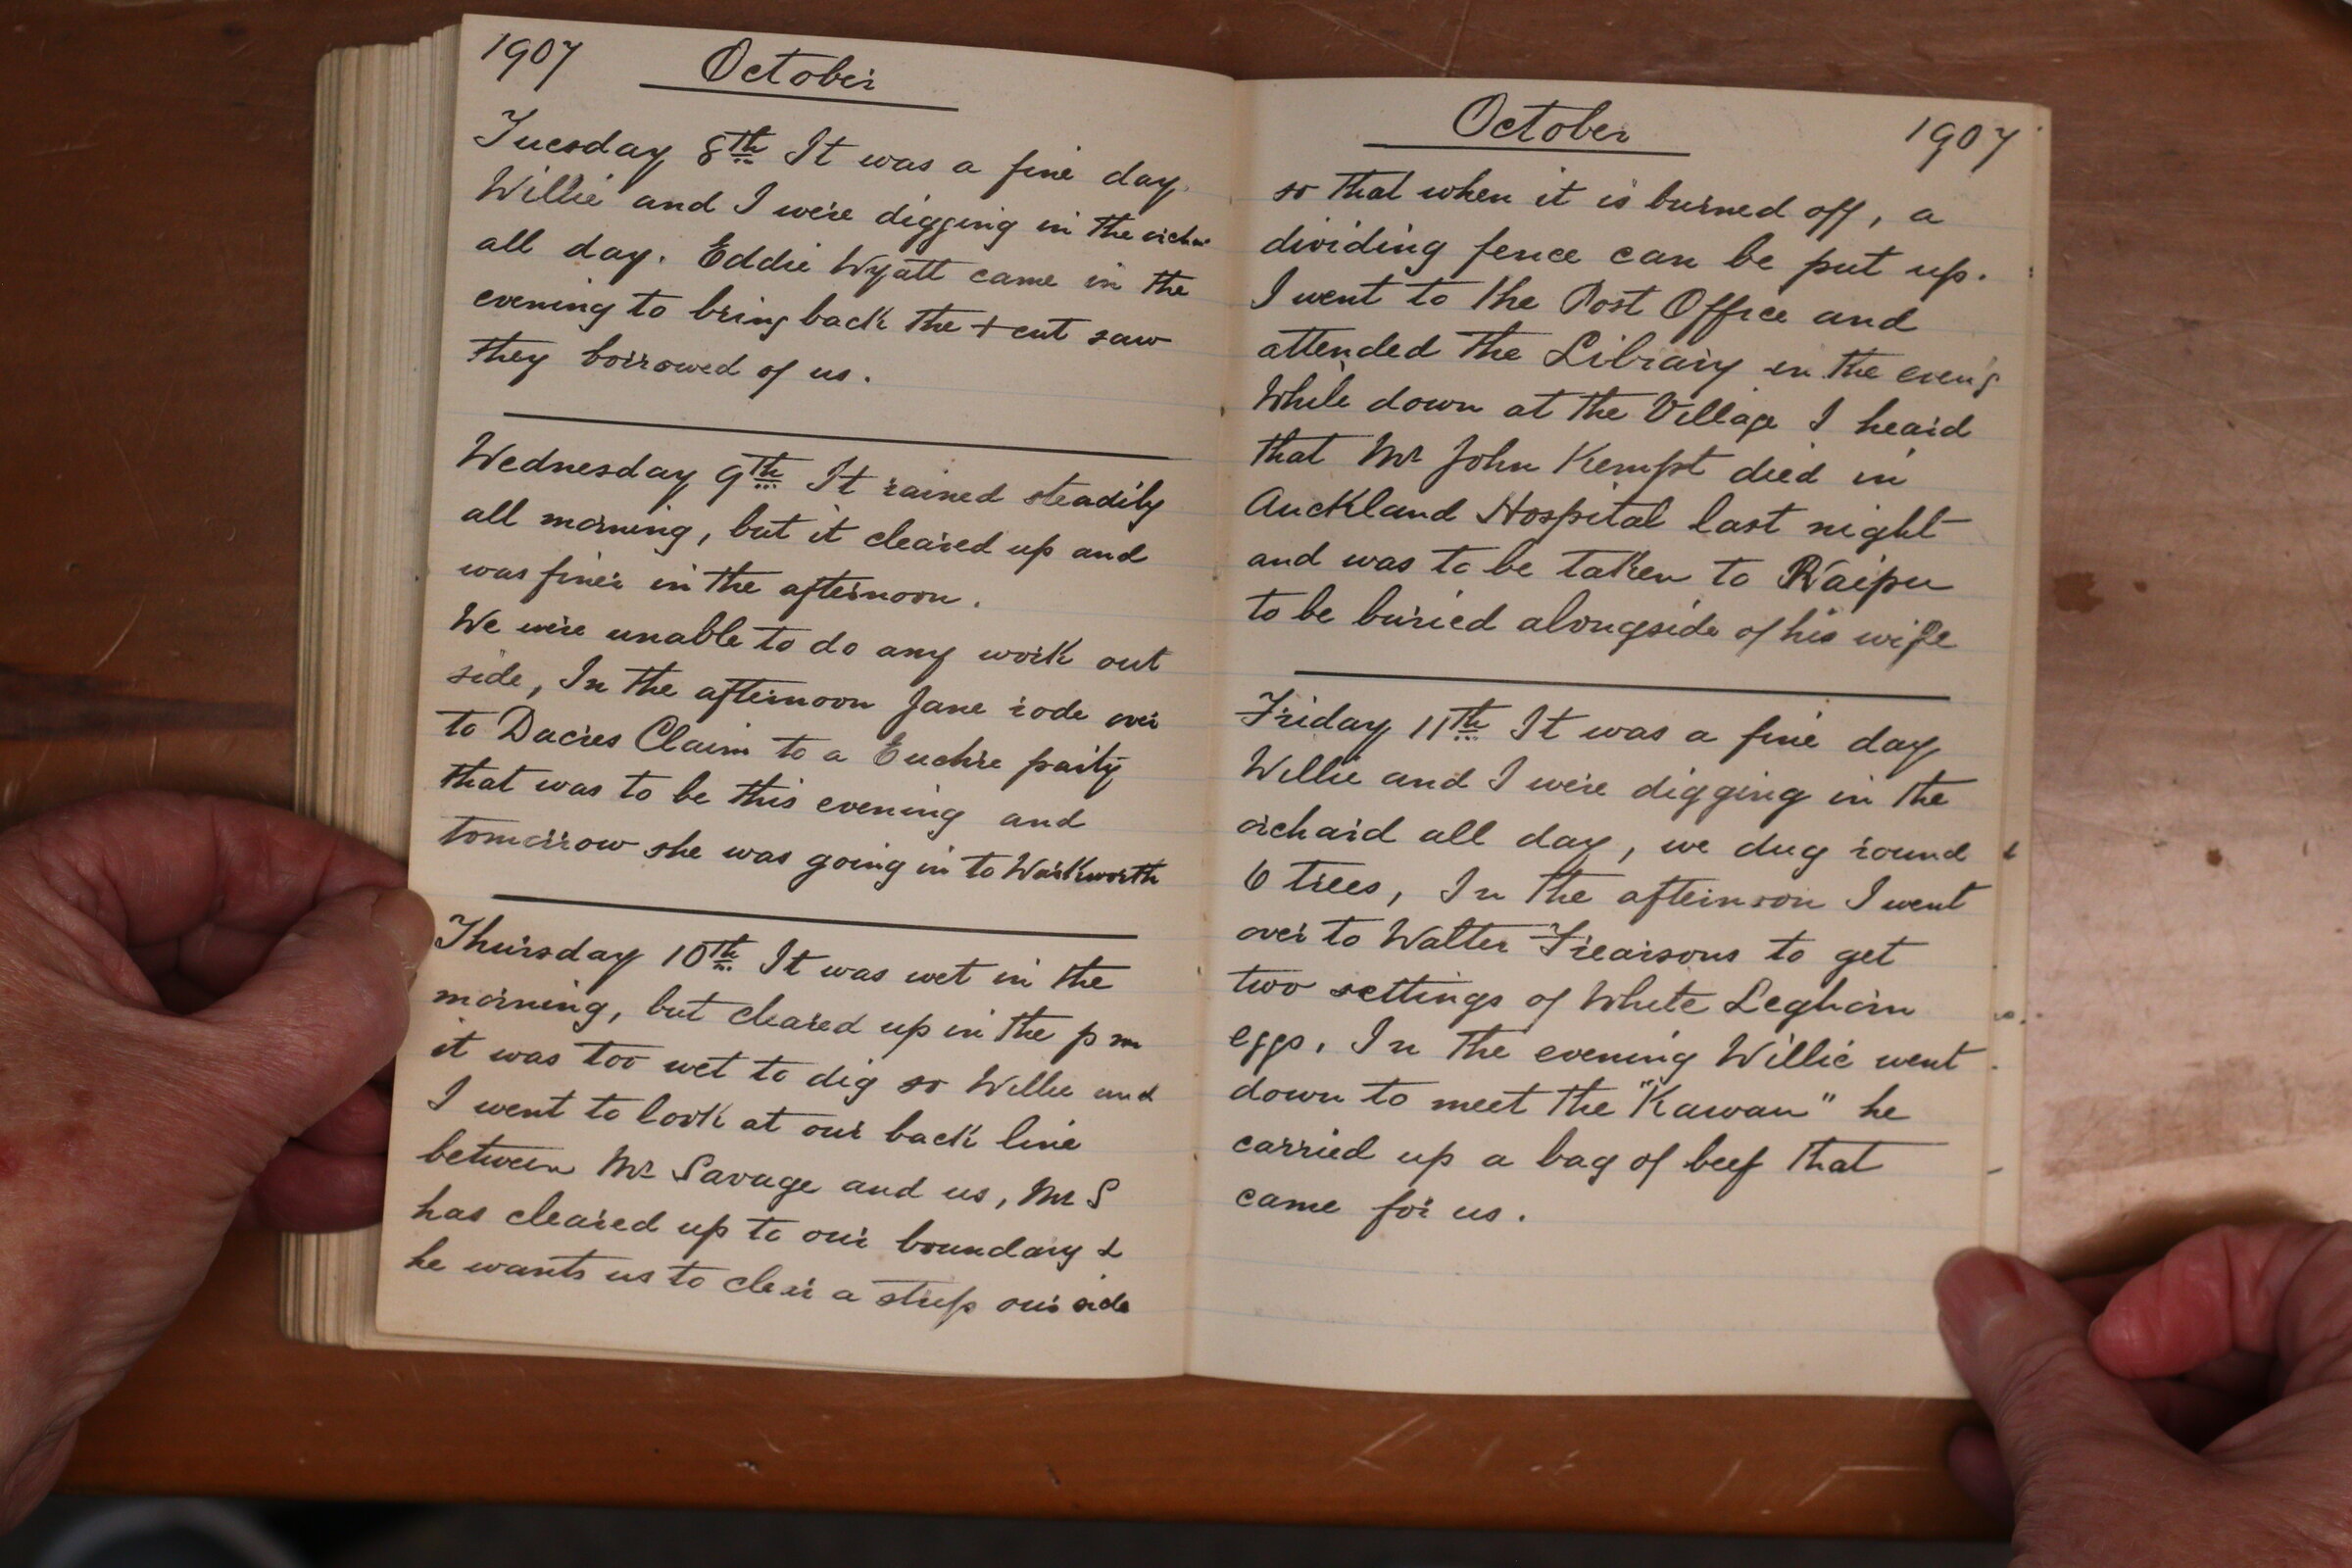 1907 October
Tuesday 8th It was a fine day.
Willie and I were digging in the orchar
all day. Eddie Wyatt came in the
evening to bring back the + cut saw
they borrowed of us.
Wednesday 9th It rained steadily
all morning, but it cleared up and
was finer in the afternoon.
We were unable to do any work out
side, In the afternoon Jane rode over
to Dacres Claim to a Euchre party
that was to be this evening and
tomorrow she was going in to Warkworth
Thursday 10th It was wet in the
morning, but cleared up in the p m
it was too wet to dig so Willie and
I went to look at our back line
between Mr Savage and us, Mr S
has cleared up to our boundary &
he wants us to clear a strip our side
October 1907
so that when it is burned off, a
dividing fence can be put up.
I went to the Post Office and
attended the Library in the eveng
While down at the Village I heard
that Mr John Kempt died in
Auckland Hospital last night
and was to be taken to Kaipu
to be buried alongside of his wife
Friday 11th It was a fine day
Willie and I were digging in the
orchard all day, we dug round
6 trees, In the afternoon I went
over to Walter Frearsons to get
two settings of White Leghorn
eggs. In the evening Willie went
down to meet the "Kawau" he
carried up a bag of beef that
came for us.